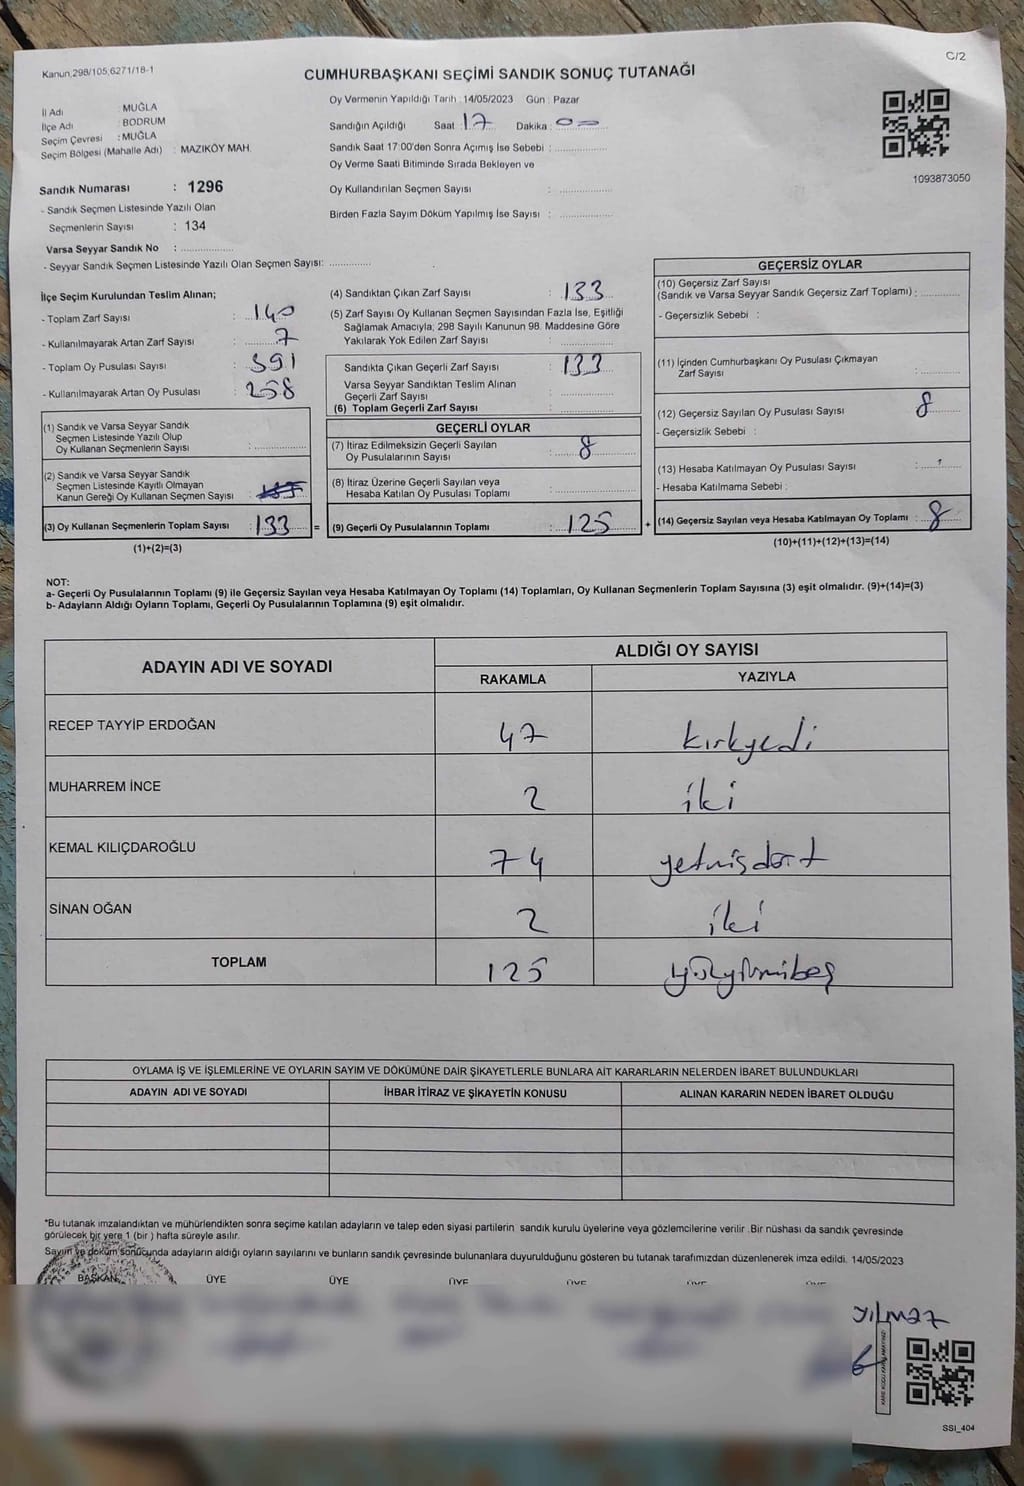 Kanun;298/105;6271/18-1
C/2
CUMHURBAŞKANI SEÇİMİ SANDIK SONUÇ TUTANAĞI
İl Adı : MUĞLA
İlçe Adı : BODRUM
Seçim Çevresi : MUĞLA
Seçim Bölgesi (Mahalle Adı) : MAZIKÖY MAH.
Oy Vermenin Yapıldığı Tarih : 14/05/2023 Gün : Pazar
Sandığın Açıldığı Saat : 17 Dakika : 00
Sandık Saat 17:00'den Sonra Açımış İse Sebebi :
Oy Verme Saati Bitiminde Sırada Bekleyen ve
Oy Kullandırılan Seçmen Sayısı :
Birden Fazla Sayım Döküm Yapılmış İse Sayısı :
1093873050
Sandık Numarası : 1296
- Sandık Seçmen Listesinde Yazılı Olan
Seçmenlerin Sayısı : 134
Varsa Seyyar Sandık No :
- Seyyar Sandık Seçmen Listesinde Yazılı Olan Seçmen Sayısı:
İlçe Seçim Kurulundan Teslim Alınan;
- Toplam Zarf Sayısı : 140
- Kullanılmayarak Artan Zarf Sayısı : 7
- Toplam Oy Pusulası Sayısı : 391
- Kullanılmayarak Artan Oy Pusulası : 258
(1) Sandık ve Varsa Seyyar Sandık
Seçmen Listesinde Yazılı Olup
Oy Kullanan Seçmenlerin Sayısı :
(2) Sandık ve Varsa Seyyar Sandık
Seçmen Listesinde Kayıtlı Olmayan
Kanun Gereği Oy Kullanan Seçmen Sayısı :
(3) Oy Kullanan Seçmenlerin Toplam Sayısı : 133 =
(1)+(2)=(3)
(4) Sandıktan Çıkan Zarf Sayısı : 133
(5) Zarf Sayısı Oy Kullanan Seçmen Sayısından Fazla İse, Eşitliği
Sağlamak Amacıyla; 298 Sayılı Kanunun 98. Maddesine Göre
Yakılarak Yok Edilen Zarf Sayısı :
Sandıkta Çıkan Geçerli Zarf Sayısı : 133
Varsa Seyyar Sandıktan Teslim Alınan
Geçerli Zarf Sayısı :
(6) Toplam Geçerli Zarf Sayısı :
GEÇERLİ OYLAR
(7) İtiraz Edilmeksizin Geçerli Sayılan
Oy Pusulalarının Sayısı : 8
(8) İtiraz Üzerine Geçerli Sayılan veya
Hesaba Katılan Oy Pusulası Toplamı :
(9) Geçerli Oy Pusulalarının Toplamı : 125 +
GEÇERSİZ OYLAR
(10) Geçersiz Zarf Sayısı
(Sandık ve Varsa Seyyar Sandık Geçersiz Zarf Toplamı) :
- Geçersizlik Sebebi :
(11) İçinden Cumhurbaşkanı Oy Pusulası Çıkmayan
Zarf Sayısı :
(12) Geçersiz Sayılan Oy Pusulası Sayısı : 8
- Geçersizlik Sebebi :
(13) Hesaba Katılmayan Oy Pusulası Sayısı :
- Hesaba Katılmama Sebebi :
(14) Geçersiz Sayılan veya Hesaba Katılmayan Oy Toplamı : 8
(10)+(11)+(12)+(13)=(14)
NOT:
a- Geçerli Oy Pusulalarının Toplamı (9) ile Geçersiz Sayılan veya Hesaba Katılmayan Oy Toplamı (14) Toplamları, Oy Kullanan Seçmenlerin Toplam Sayısına (3) eşit olmalıdır. (9)+(14)=(3)
b- Adayların Aldığı Oyların Toplamı, Geçerli Oy Pusulalarının Toplamına (9) eşit olmalıdır.
ADAYIN ADI VE SOYADI
ALDIĞI OY SAYISI
RAKAMLA YAZIYLA
RECEP TAYYİP ERDOĞAN 47 kırkyedi
MUHARREM İNCE 2 iki
KEMAL KILIÇDAROĞLU 74 yetmişdört
SİNAN OĞAN 2 iki
TOPLAM 125 yüzyirmibeş
OYLAMA İŞ VE İŞLEMLERİNE VE OYLARIN SAYIM VE DÖKÜMÜNE DAİR ŞİKAYETLERLE BUNLARA AİT KARARLARIN NELERDEN İBARET BULUNDUKLARI
ADAYIN ADI VE SOYADI İHBAR İTİRAZ VE ŞİKAYETİN KONUSU ALINAN KARARIN NEDEN İBARET OLDUĞU
*Bu tutanak imzalandıktan ve mühürlendikten sonra seçime katılan adayların ve talep eden siyasi partilerin sandık kurulu üyelerine veya gözlemcilerine verilir .Bir nüshası da sandık çevresinde
görülecek bir yere 1 (bir ) hafta süreyle asılır.
Sayım ve döküm sonucunda adayların aldığı oyların sayılarını ve bunların sandık çevresinde bulunanlara duyurulduğunu gösteren bu tutanak tarafımızdan düzenlenerek imza edildi. 14/05/2023
BAŞKAN ÜYE ÜYE ÜYE ÜYE ÜYE ÜYE
yılmaz
KARE KODU KARALAMAYINIZ!
SSI_404